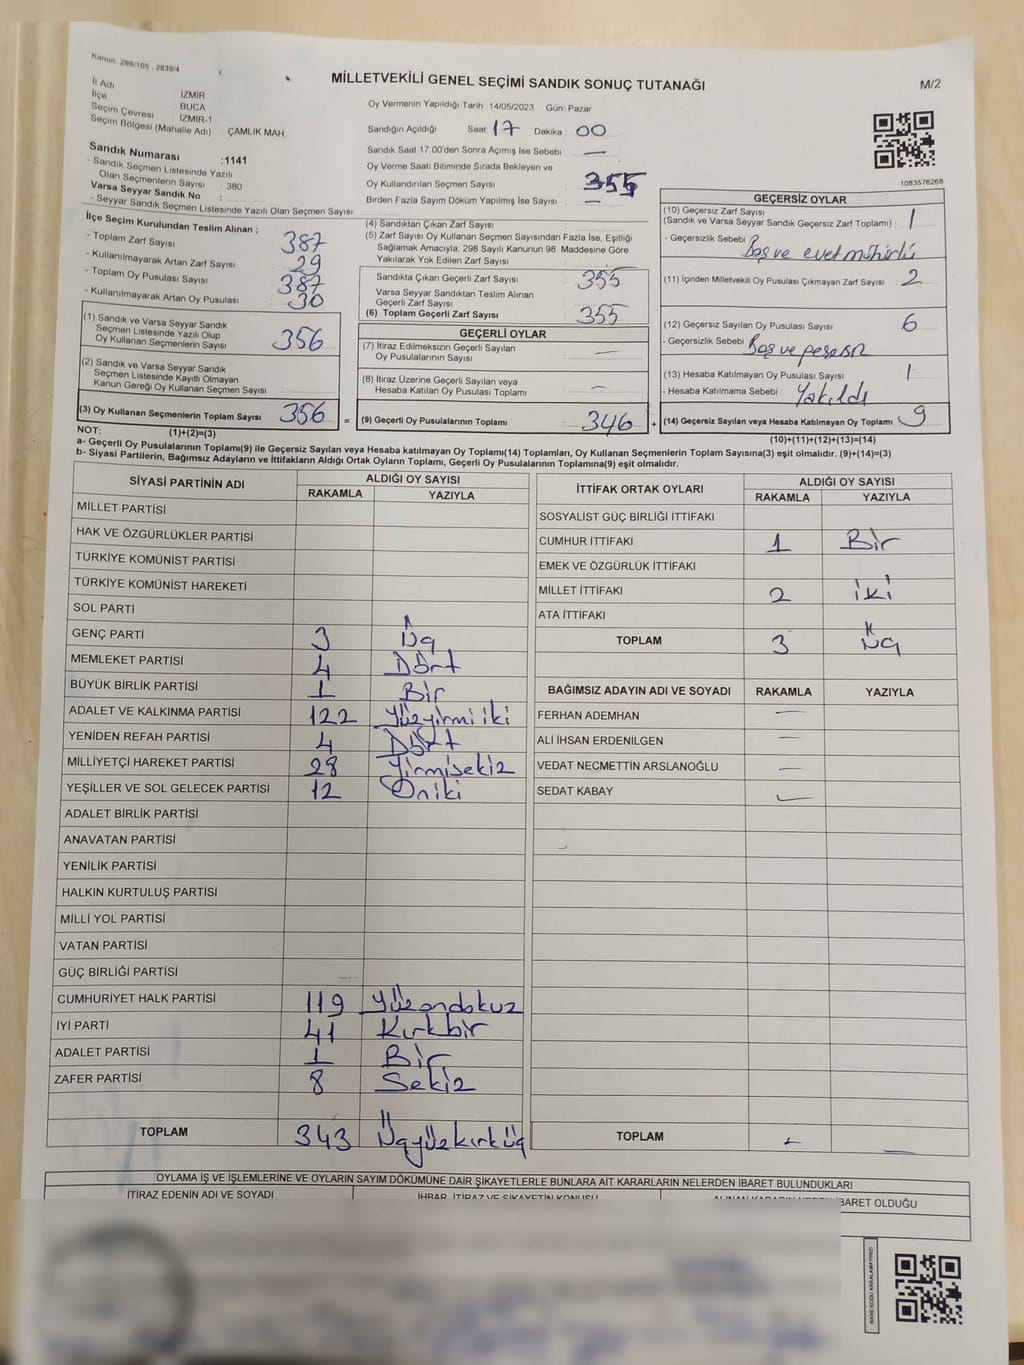 Kanun: 298/105 , 2839/4
MİLLETVEKİLİ GENEL SEÇİMİ SANDIK SONUÇ TUTANAĞI
M/2
İl Adı : İZMİR
İlçe : BUCA
Seçim Çevresi : İZMİR-1
Seçim Bölgesi (Mahalle Adı) : ÇAMLIK MAH.
Oy Vermenin Yapıldığı Tarih : 14/05/2023 Gün: Pazar
Sandığın Açıldığı Saat: 17 Dakika : 00
Sandık Saat 17.00'den Sonra Açımış İse Sebebi : —
Oy Verme Saati Bitiminde Sırada Bekleyen ve
Oy Kullandırılan Seçmen Sayısı : 355
Birden Fazla Sayım Döküm Yapılmış İse Sayısı : —
1083576268
Sandık Numarası :1141
- Sandık Seçmen Listesinde Yazılı
Olan Seçmenlerin Sayısı : 380
Varsa Seyyar Sandık No :
- Seyyar Sandık Seçmen Listesinde Yazılı Olan Seçmen Sayısı
İlçe Seçim Kurulundan Teslim Alınan ;
- Toplam Zarf Sayısı : 387
- Kullanılmayarak Artan Zarf Sayısı : 29
- Toplam Oy Pusulası Sayısı : 387
- Kullanılmayarak Artan Oy Pusulası : 30
(1) Sandık ve Varsa Seyyar Sandık
Seçmen Listesinde Yazılı Olup
Oy Kullanan Seçmenlerin Sayısı 356
(2) Sandık ve Varsa Seyyar Sandık
Seçmen Listesinde Kayıtlı Olmayan
Kanun Gereği Oy Kullanan Seçmen Sayısı
(3) Oy Kullanan Seçmenlerin Toplam Sayısı 356 =
(1)+(2)=(3)
(4) Sandıktan Çıkan Zarf Sayısı :
(5) Zarf Sayısı Oy Kullanan Seçmen Sayısından Fazla İse, Eşitliği
Sağlamak Amacıyla, 298 Sayılı Kanunun 98. Maddesine Göre
Yakılarak Yok Edilen Zarf Sayısı :
Sandıkta Çıkan Geçerli Zarf Sayısı : 355
Varsa Seyyar Sandıktan Teslim Alınan
Geçerli Zarf Sayısı :
(6) Toplam Geçerli Zarf Sayısı : 355
GEÇERLİ OYLAR
(7) İtiraz Edilmeksizin Geçerli Sayılan
Oy Pusulalarının Sayısı : —
(8) İtiraz Üzerine Geçerli Sayılan veya
Hesaba Katılan Oy Pusulası Toplamı : —
(9) Geçerli Oy Pusulalarının Toplamı : 346 +
GEÇERSİZ OYLAR
(10) Geçersiz Zarf Sayısı
(Sandık ve Varsa Seyyar Sandık Geçersiz Zarf Toplamı) : 1
- Geçersizlik Sebebi : Boş ve evet mühürlü
(11) İçinden Milletvekili Oy Pusulası Çıkmayan Zarf Sayısı : 2
(12) Geçersiz Sayılan Oy Pusulası Sayısı : 6
- Geçersizlik Sebebi : Boş ve
(13) Hesaba Katılmayan Oy Pusulası Sayısı : 1
- Hesaba Katılmama Sebebi : Yakıldı
(14) Geçersiz Sayılan veya Hesaba Katılmayan Oy Toplamı : 9
(10)+(11)+(12)+(13)=(14)
NOT:
a- Geçerli Oy Pusulalarının Toplamı(9) ile Geçersiz Sayılan veya Hesaba katılmayan Oy Toplamı(14) Toplamları, Oy Kullanan Seçmenlerin Toplam Sayısına(3) eşit olmalıdır. (9)+(14)=(3)
b- Siyasi Partilerin, Bağımsız Adayların ve İttifakların Aldığı Ortak Oyların Toplamı, Geçerli Oy Pusulalarının Toplamına(9) eşit olmalıdır.
SİYASİ PARTİNİN ADI ALDIĞI OY SAYISI
RAKAMLA YAZIYLA
MİLLET PARTİSİ
HAK VE ÖZGÜRLÜKLER PARTİSİ
TÜRKİYE KOMÜNİST PARTİSİ
TÜRKİYE KOMÜNİST HAREKETİ
SOL PARTİ
GENÇ PARTİ 3 Üç
MEMLEKET PARTİSİ 4 Dört
BÜYÜK BİRLİK PARTİSİ 1 Bir
ADALET VE KALKINMA PARTİSİ 122 Yüzyirmi iki
YENİDEN REFAH PARTİSİ 4 Dört
MİLLİYETÇİ HAREKET PARTİSİ 28 Yirmisekiz
YEŞİLLER VE SOL GELECEK PARTİSİ 12 Oniki
ADALET BİRLİK PARTİSİ
ANAVATAN PARTİSİ
YENİLİK PARTİSİ
HALKIN KURTULUŞ PARTİSİ
MİLLİ YOL PARTİSİ
VATAN PARTİSİ
GÜÇ BİRLİĞİ PARTİSİ
CUMHURİYET HALK PARTİSİ 119 Yüzondokuz
İYİ PARTİ 41 Kırkbir
ADALET PARTİSİ 1 Bir
ZAFER PARTİSİ 8 Sekiz
TOPLAM 343 Üçyüzkırküç
İTTİFAK ORTAK OYLARI ALDIĞI OY SAYISI
RAKAMLA YAZIYLA
SOSYALİST GÜÇ BİRLİĞİ İTTİFAKI
CUMHUR İTTİFAKI 1 Bir
EMEK VE ÖZGÜRLÜK İTTİFAKI
MİLLET İTTİFAKI 2 İki
ATA İTTİFAKI
TOPLAM 3 Üç
BAĞIMSIZ ADAYIN ADI VE SOYADI RAKAMLA YAZIYLA
FERHAN ADEMHAN —
ALİ İHSAN ERDENİLGEN —
VEDAT NECMETTİN ARSLANOĞLU —
SEDAT KABAY —
TOPLAM — —
OYLAMA İŞ VE İŞLEMLERİNE VE OYLARIN SAYIM DÖKÜMÜNE DAİR ŞİKAYETLERLE BUNLARA AİT KARARLARIN NELERDEN İBARET BULUNDUKLARI
İTİRAZ EDENİN ADI VE SOYADI İHBAR, İTİRAZ VE ŞİKAYETİN KONUSU ALINAN KARARIN NEDEN İBARET OLDUĞU
KARE KODU KARALAMAYINIZ!